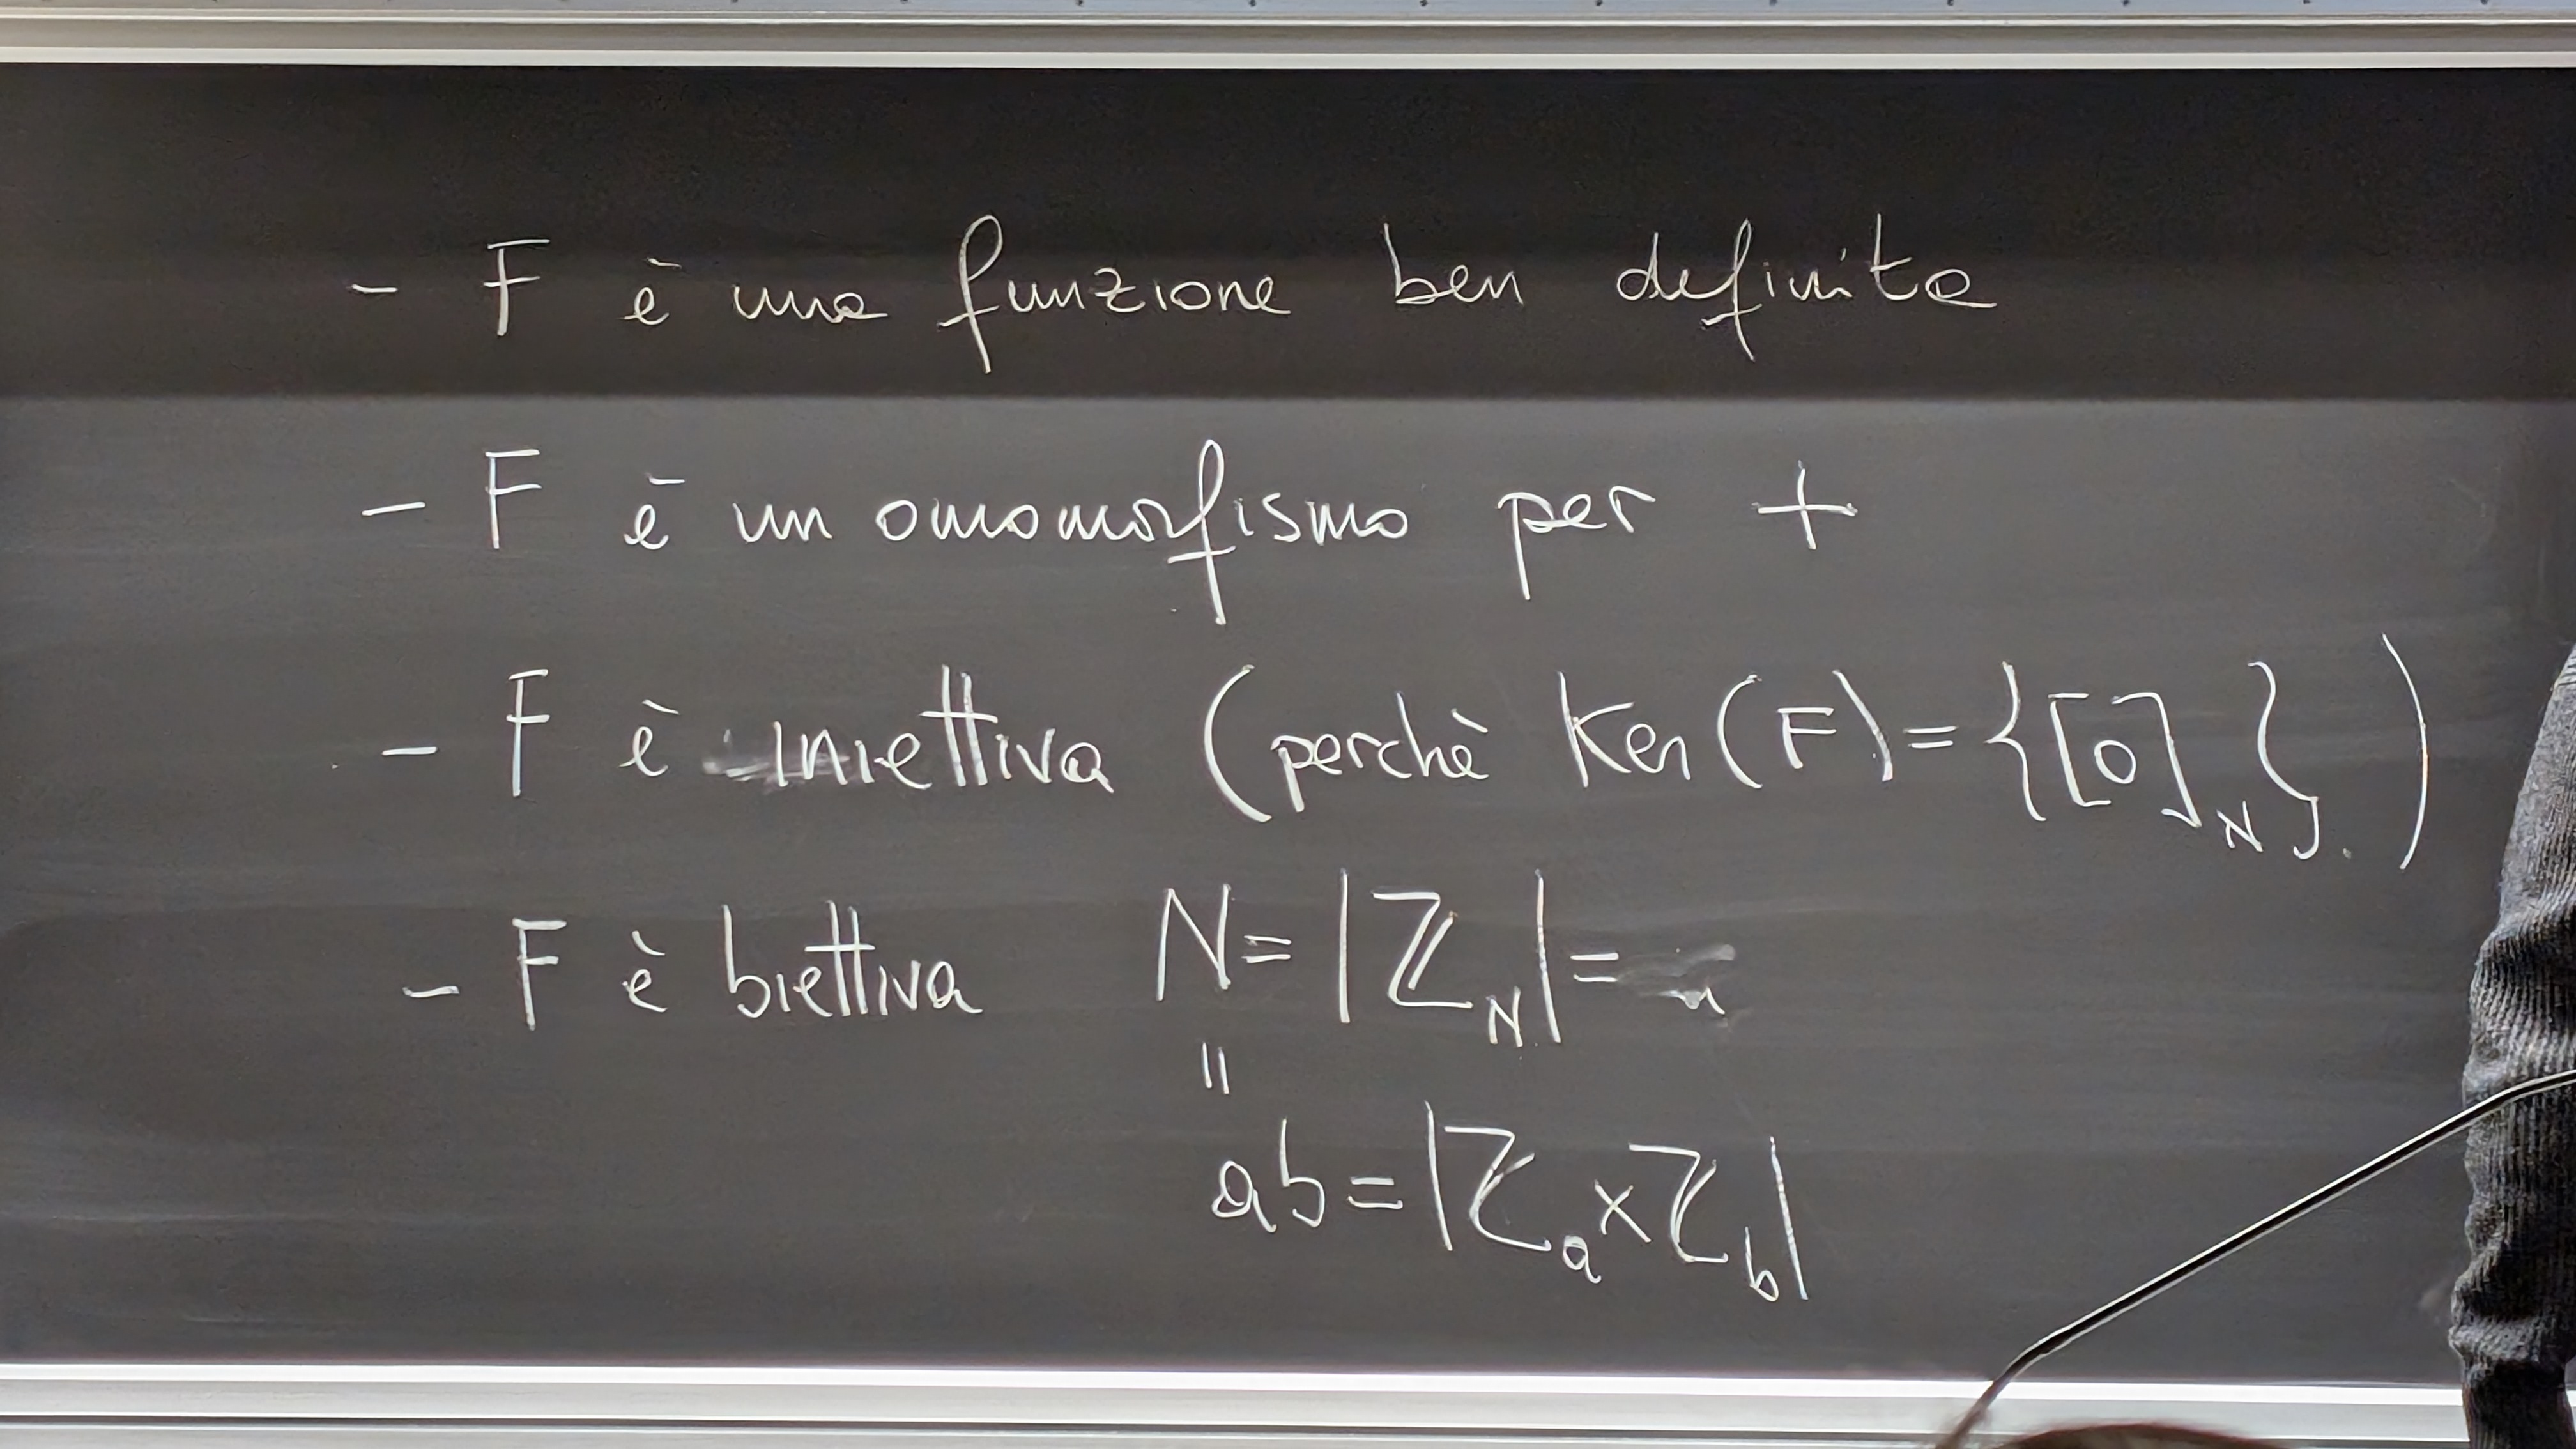 - F è una funzione ben definita
- F è un omomorfismo per +
- F è iniettiva (perchè Ker(F)={[0]_N}.)
- F è biettiva N=|ℤ_N|=
=
ab=|ℤ_a×ℤ_b|